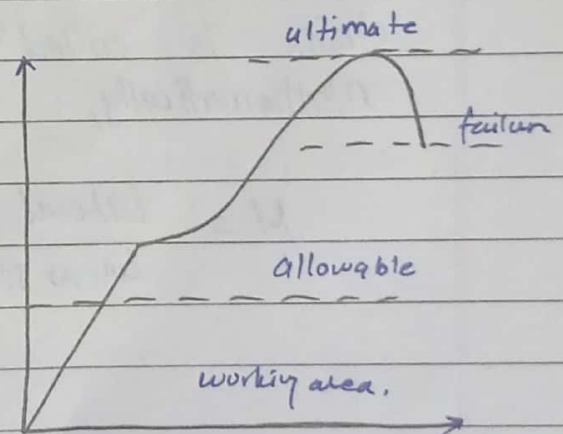 ultimate
failure
allowable
working area.